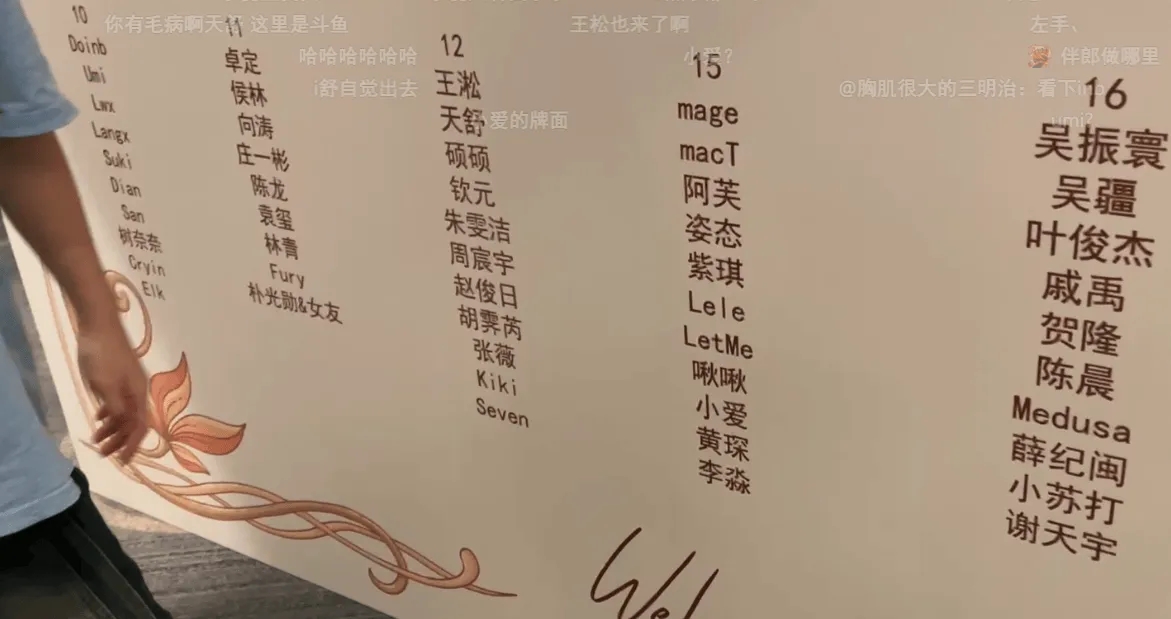 你有毛病啊天舒 这里是斗鱼
王松也来了啊
左手、
哈哈哈哈哈哈
小爱?
伴郎做哪里
i舒自觉出去
@胸肌很大的三明治: 看下
umi?
爱的牌面
10
Doinb
Umi
Lwx
Langx
Suki
Dian
San
树奈奈
Cryin
Elk
11
卓定
侯林
向涛
庄一彬
陈龙
袁玺
林青
Fury
朴光勋&女友
12
王淞
天舒
硕硕
钦元
朱雯洁
周宸宇
赵俊日
胡霁芮
张薇
Kiki
Seven
15
mage
macT
阿芙
姿态
紫琪
Lele
LetMe
啾啾
小爱
黄琛
李淼
16
吴振寰
吴疆
叶俊杰
戚禹
贺隆
陈晨
Medusa
薛纪闽
小苏打
谢天宇
Wel